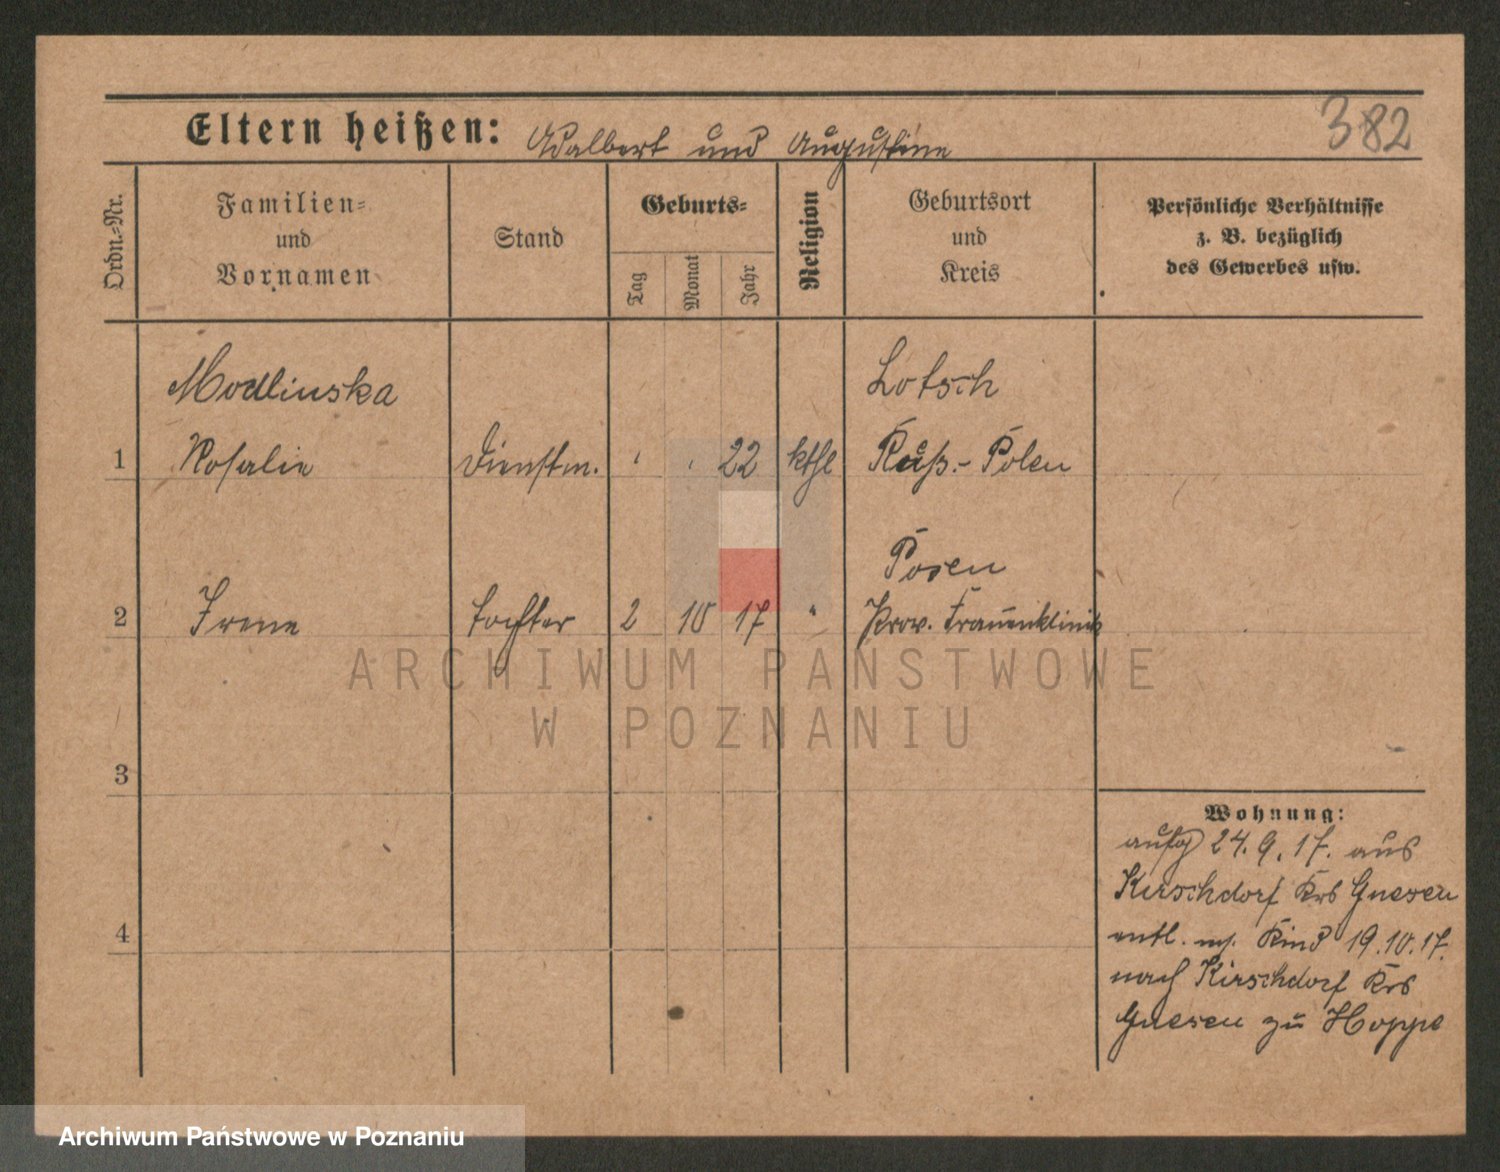 382
Eltern heißen: Adalbert und Augustine
Ordn.-Nr.
Familien-
und
Vornamen
Stand
Geburts-
Tag
Monat
Jahr
Religion
Geburtsort
und
Kreis
Persönliche Verhältnisse
z. B. bezüglich
des Gewerbes usw.
Modlinska Lotsch
1 Rosalie Dienstm. 22 kthl Ruß.- Polen
Posen
2 Irene Tochter 2 10 17 " Prov. Frauenklinik
ARCHIWUM PAŃSTWOWE
W POZNANIU
3
4
Wohnung:
aufg 24. 9. 17. aus
Kirschdorf Krs Gnesen
entl. m. Kind 19.10.17.
nach Kirschdorf Krs
Gnesen zu Hoppe
Archiwum Państwowe w Poznaniu